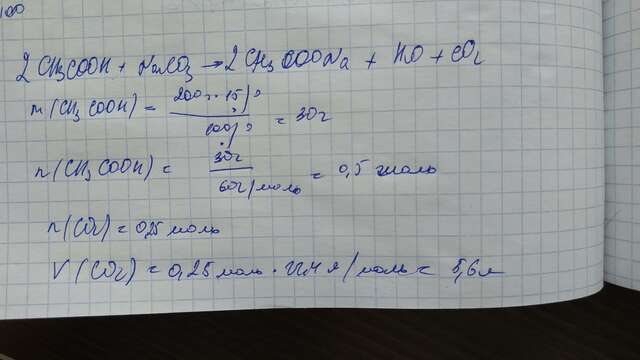 100
2 CH3COOH + Na2CO3 → 2 CH3COONa + H2O + CO2
m(CH3COOH) = 200г · 15% / 100% = 30г
n(CH3COOH) = 30г / 60г/моль = 0,5 моль
n(CO2) = 0,25 моль
V(CO2) = 0,25 моль · 22,4 л/моль = 5,6 л